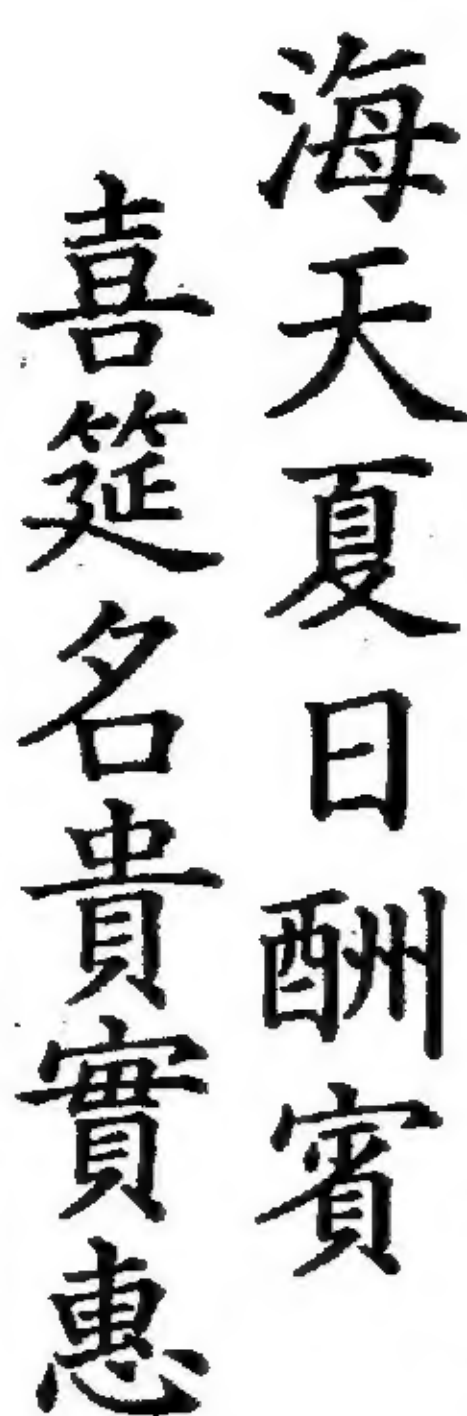 海天夏日酬賓
喜筵名貴實惠